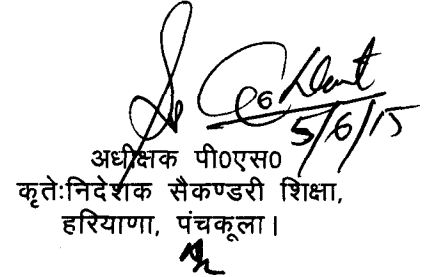 5/6/15
अधीक्षक पी0एस0
कृतेःनिदेशक सैकण्डरी शिक्षा,
हरियाणा, पंचकूला।